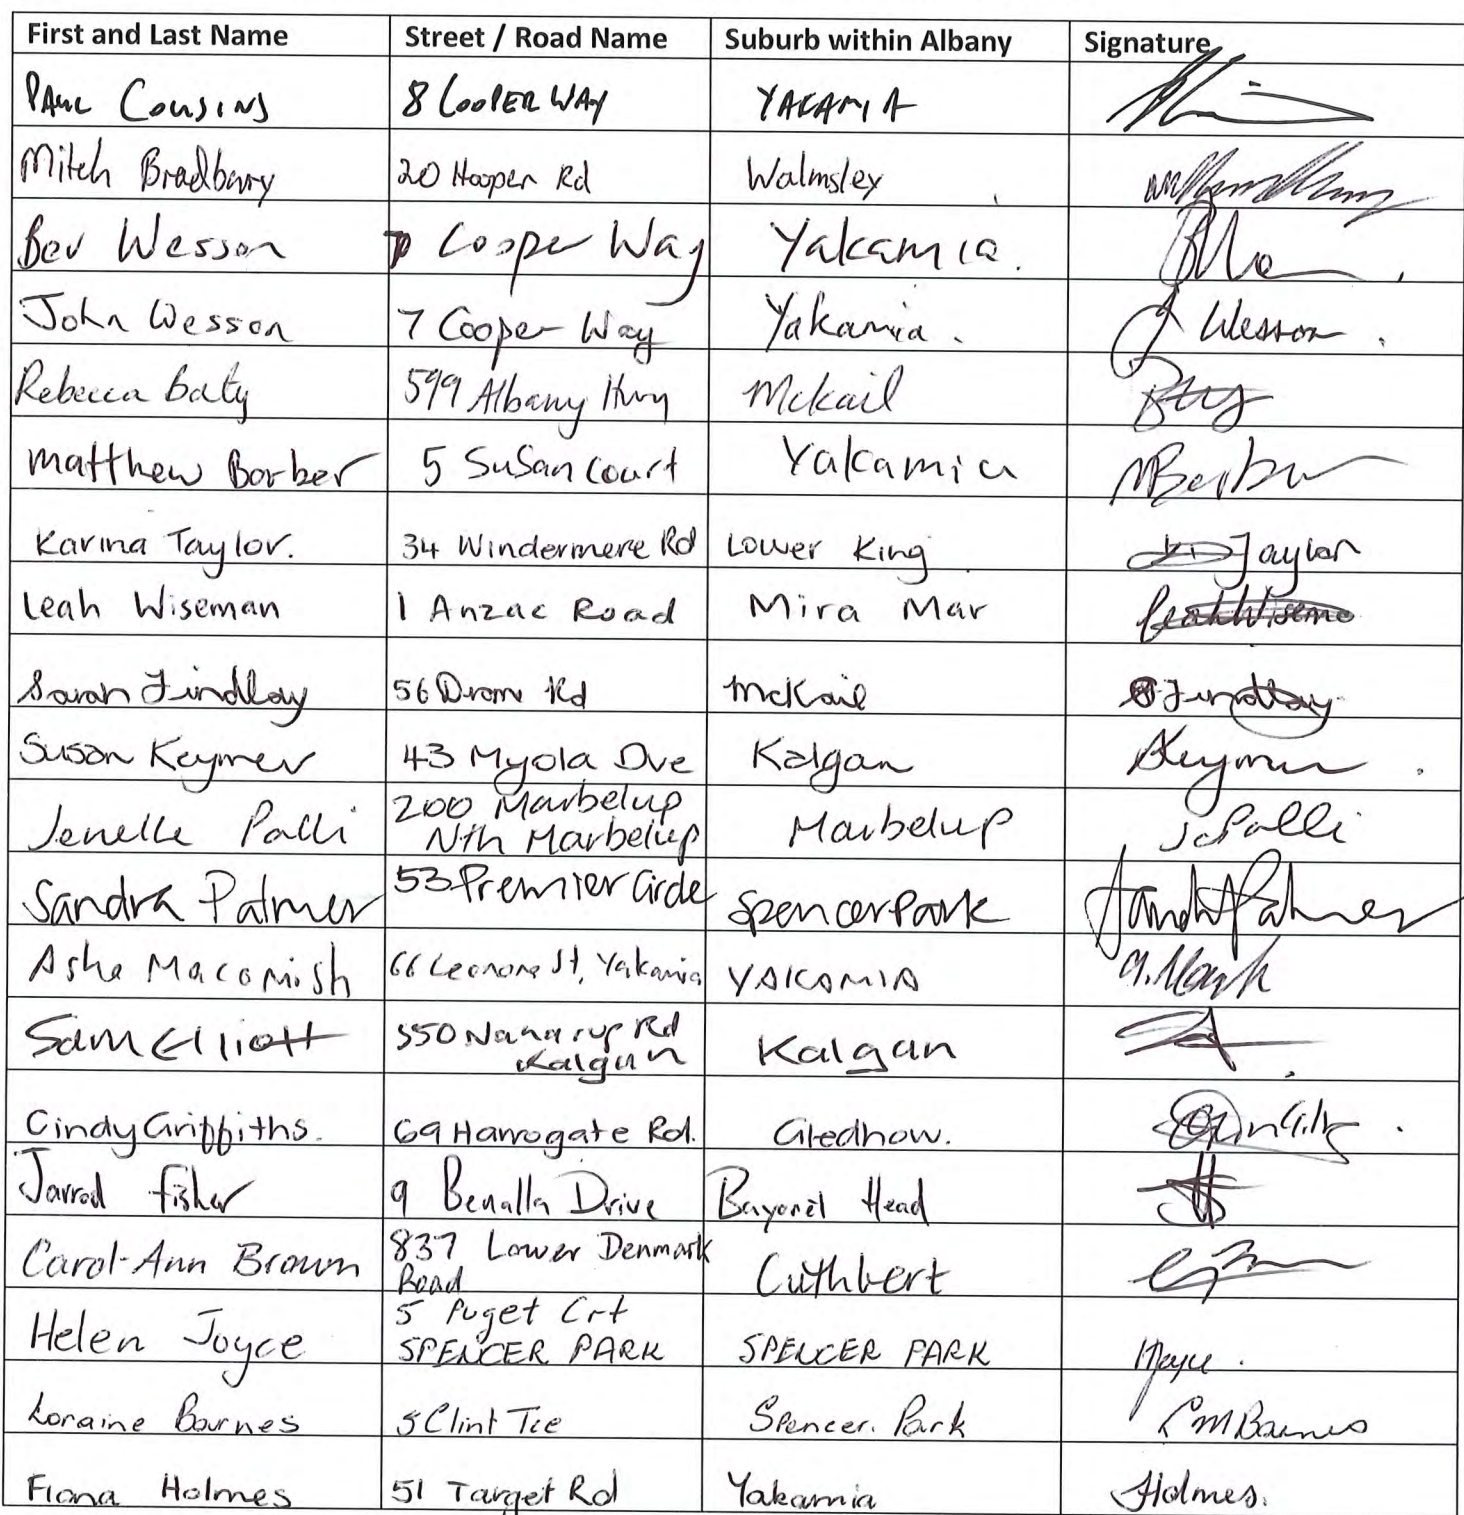 First and Last Name Street / Road Name Suburb within Albany Signature
PAUL COUSINS 8 COOPER WAY YAKAMIA
Mitch Bradbury 20 Hooper Rd Walmsley
Bev Wesson 7 Cooper Way Yakamia.
John Wesson 7 Cooper Way Yakamia. J Wesson.
Rebecca Baty 599 Albany Hwy Mckail
Matthew Barber 5 Susan Court Yakamia MBarber
Karina Taylor. 34 Windermere Rd Lower King Taylor
Leah Wiseman 1 Anzac Road Mira Mar
Sarah Findlay 56 Drome Rd McKail S Findlay
Susan Keymer 43 Myola Dve Kalgan SKeymer.
Jenelle Palli 200 Marbelup
Nth Marbelup Marbelup J Palli
Sandra Palmer 53 Premier Circle Spencer Park Sandra Palmer
Asha Macomish 66 Leonora St, Yakamia YAKAMIA
Sam Elliott 550 Nanarup Rd
Kalgan Kalgan
Cindy Griffiths. 69 Harrogate Rd. Gledhow.
Jarrod Fisher 9 Benalla Drive Bayonet Head
Carol-Ann Brown 837 Lower Denmark
Road Cuthbert
Helen Joyce 5 Puget Crt
SPENCER PARK SPENCER PARK HJoyce.
Loraine Barnes 5 Clint Tce Spencer. Park LMBarnes
Fiona Holmes 51 Target Rd Yakamia FHolmes.